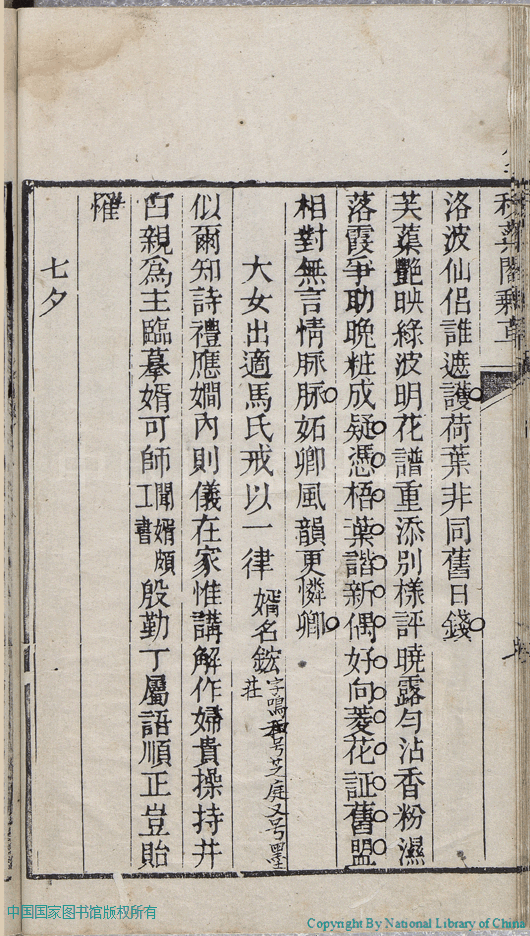 秋葉閣賸草
洛波仙侶誰遮護荷葉非同舊日錢
芙蕖艷映綠波明花譜重添別樣評曉露勻沾香粉濕
落霞爭助晚粧成疑憑梧葉諧新偶好向菱花証舊盟
相對無言情脉脉妬卿風韻更憐卿
大女出適馬氏戒以一律 婿名鋐字鳴和号芝庭又号墨莊
似爾知詩禮應嫻內則儀在家惟講解作婦貴操持井
臼親爲主臨摹婿可師聞婿頗工書殷勤丁屬語順正豈貽
罹
七夕
中国国家图书馆版权所有
Copyright By National Library of China